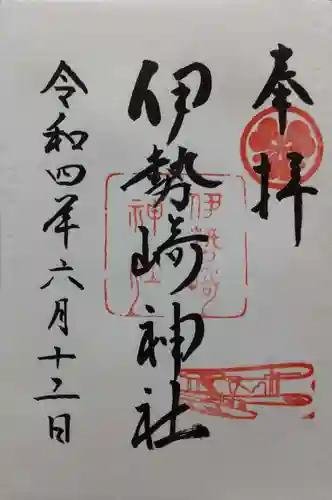 奉拝
伊勢崎神社
令和四年六月十二日
伊勢崎
神社